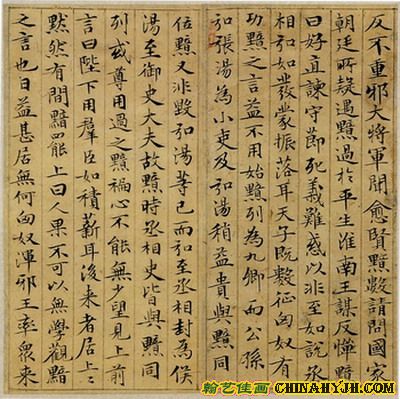 反不重邪大將軍聞愈賢黯數請問國家
朝廷所疑遇黯過於平生淮南王謀反憚黯
曰好直諫守節死義難惑以非至如說丞
相弘如發蒙振落耳天子既數征匈奴有
功黯之言益不用始黯列為九卿而公孫
弘張湯為小吏及弘湯稍益貴與黯同
位黯又非毀弘湯等已而弘至丞相封為侯
湯至御史大夫故黯時丞相史皆與黯同
列或尊用過之黯褊心不能無少望見上前
言曰陛下用羣臣如積薪耳後来者居上〻
默然有間黯罷上曰人果不可以無學觀黯
之言也日益甚居無何匈奴渾邪王率衆来
翰艺佳画
CHINAHYJH.COM